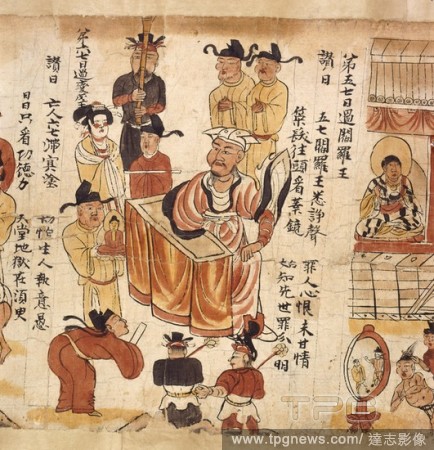 第五七日過閻羅王
讃曰 五七閻羅王悉諍聲 罪人心恨未甘情
策髮往頭看業鏡 始知先世罪分明
第六七日過變成王
讃曰 亡人六七滯冥塗 切怕生人執意愚
日日只看功德力 天堂地獄在須臾
TPG
www.tpgnews.com/達志影像